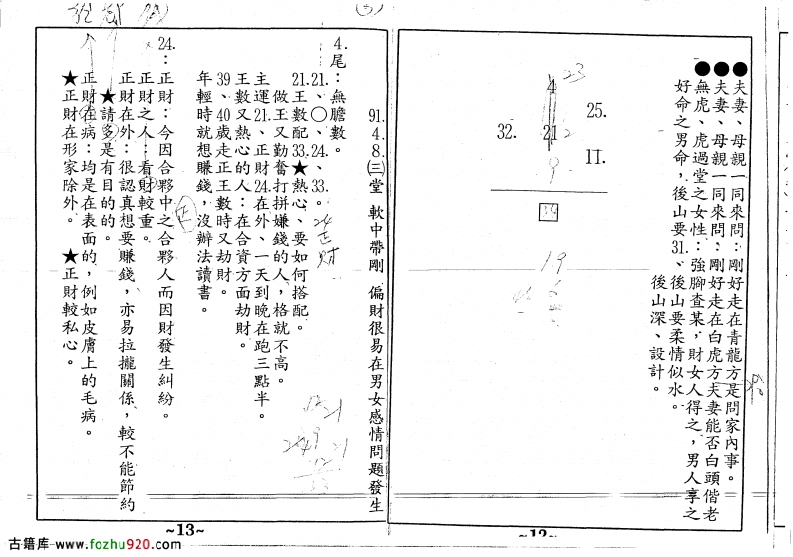 ●●夫妻、母親一同來問：剛好走在青龍方是問家內事。
●夫妻、母親一同來問：剛好走在白虎方夫妻能否白頭偕老
●無虎、虎過堂之女性：強腳查某，財女人得之，男人享之
好命之男命，後山要31、後山要柔情似水。
後山深、設計。
4
23
25.
32.
21
2
11.
9
19
~12~
91.4.8.㈢堂　軟中帶剛　偏財很易在男女感情問題發生
4.尾：無膽數。
21.21.、○、24.、33.。
21.王數配33.★熱心、要如何搭配。
做王又勤奮打拼嫌錢的人，格就不高。
主運21、正財24.在外、一天到晚在跑三點半。
王數又熱心的人：在合資方面劫財。
39、40歲走正王數時又劫財。
年輕時就想賺錢，沒辦法讀書。
24正財
24.：正財：今因合夥中之合夥人而因財發生糾紛。
正財之人：看財較重。
正財在外：很認真想要賺錢，亦易拉攏關係，較不能節約
★請多是有目的的。
正財在病：均是在表面的，例如皮膚上的毛病。
★正財在形家除外。　★正財較私心。
~13~
古籍库 www.fozhu920.com